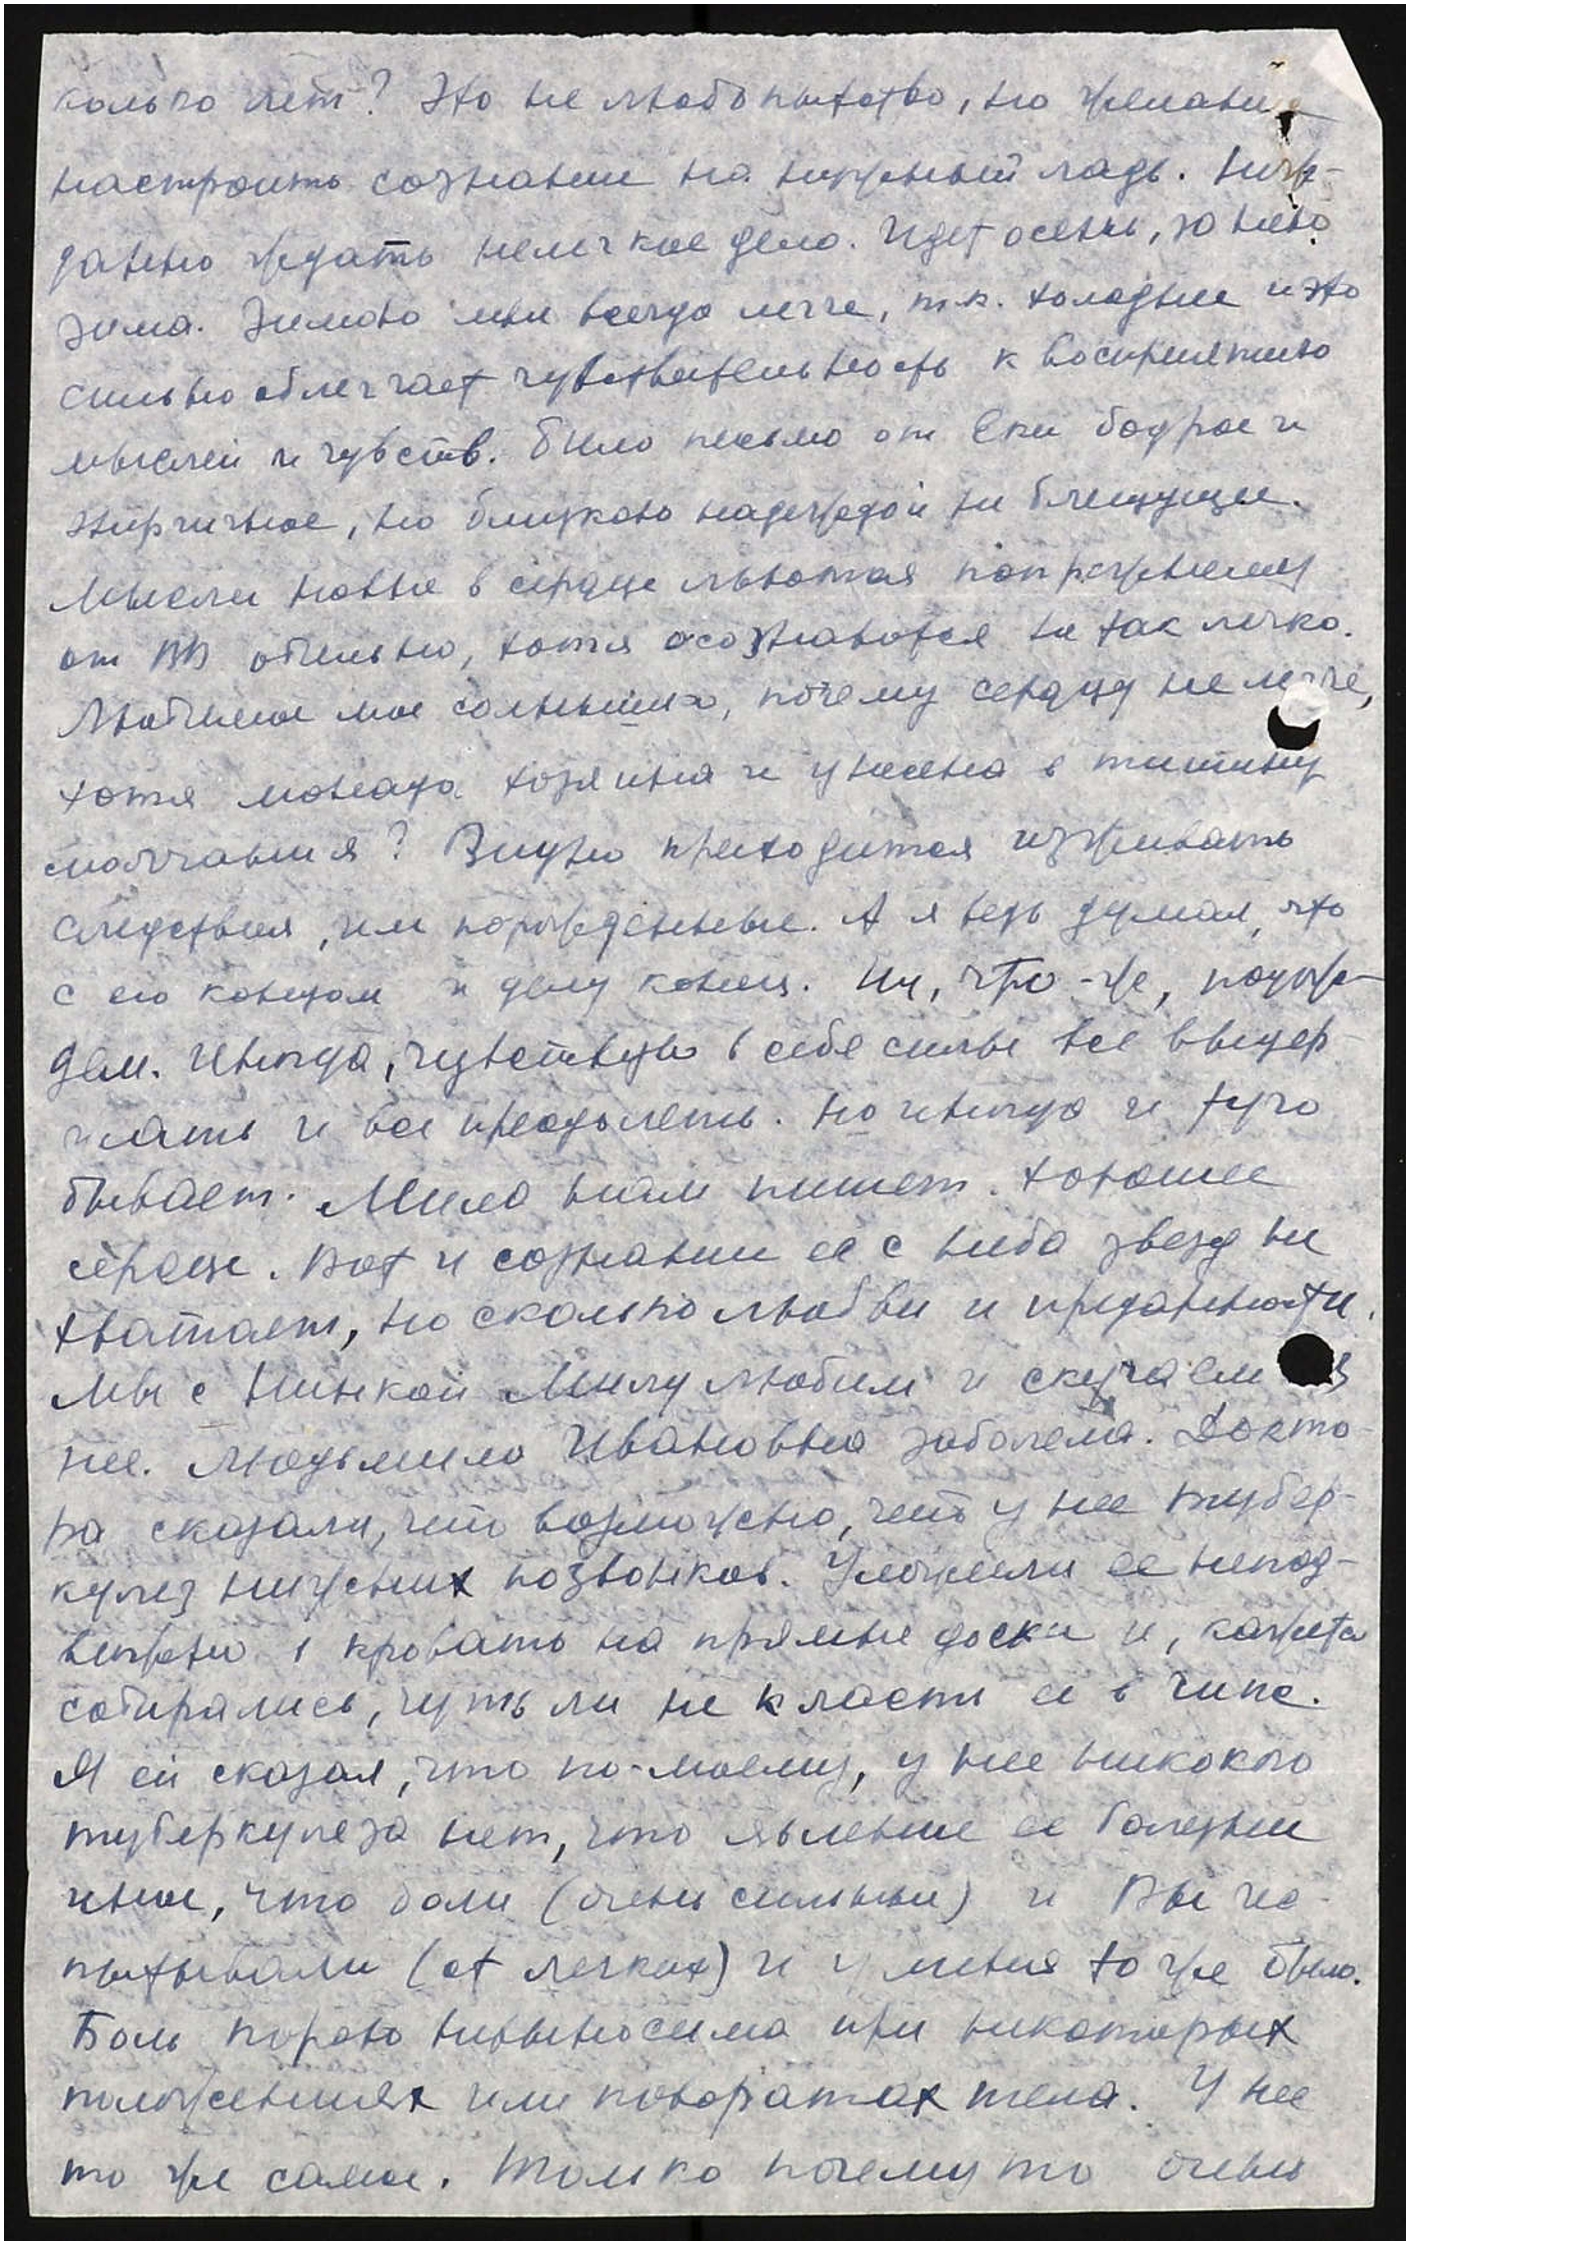 колько лет? Это не любопытство, но желание
настроить сознание на нужный ладъ. Неж-
данно ждать нелегкое дело. Идет осень, за нею
зима. Зимою мне всегда легче, т.к. холоднее и это
сильно облегчает чувствительность к восприятию
мыслей и чувств. Было письмо от Ени бодрое и
энергичное, но близкою надеждой не блещущее.
Мысли новые в сердце льются попрежнему
от ВВ обильно, хотя осознаются не так легко.
Любимое мое солнышко, почему сердцу не легче,
хотя монада хозяина и унесена в тишину
молчания? Видно приходится изживать
следствия, им порожденные. А я ведь думал, что
с его концом и делу конец. Ну, что-же, подож-
дем. Иногда, чувствую в себе силы все выдер-
жать и все преодолеть. Но иногда и туго
бывает. Мила нам пишет. Хорошее
сердце. Вот и сознание ее с неба звезд не
хватает, но сколько любви и преданности.
Мы с Нинкой Милу любим и скучаем без
нее. Людмила Ивановна заболела. Докто-
ра сказали, что возможно, что у нее тубер-
кулез нижних позвонков. Уложили ее непод-
вижно в кровать на прямые доски и, кажется
собирались, чуть ли не класть ее в гипс.
Я ей сказал, что по-моему, у нее никакого
туберкулеза нет, что явление ее болезни
иное, что боли (очень сильные) и Вы ис-
пытывали (от легких) и у меня то же было.
Боль порою невыносима при некоторых
положениях или поворотах тела. У нее
то же самое. Только почему то очень